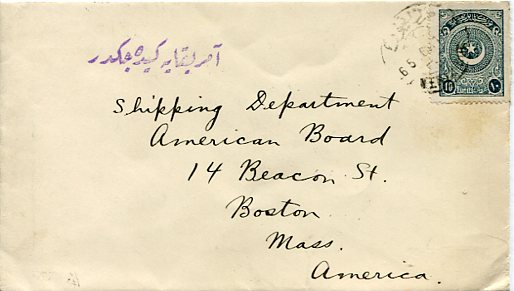 آمریقایه کیده جکدر
Shipping Department
American Board
14 Beacon St.
Boston
Mass.
America.
10 ١٠